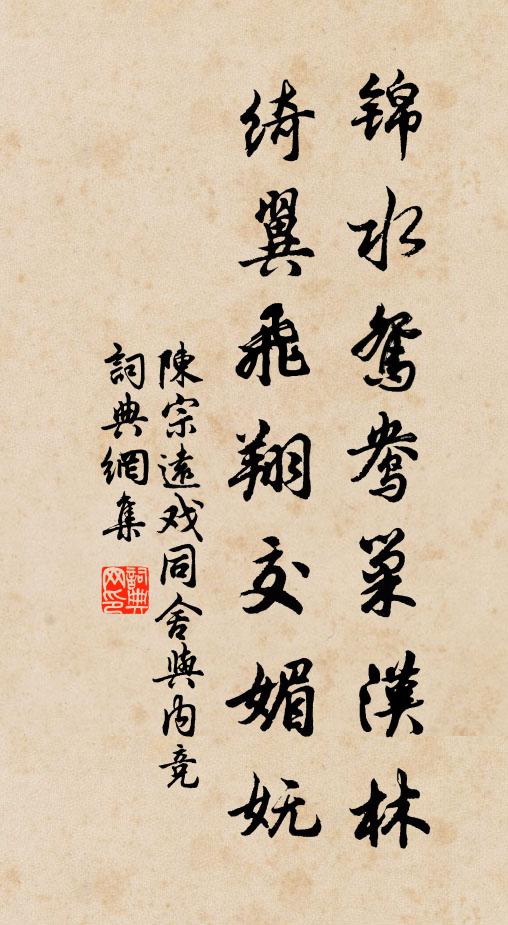 锦水鸳鸯巢漢林
绮翼飛翔交媚妩
陳宗遠戏同舍與内竞
詞典網集
詞典网印